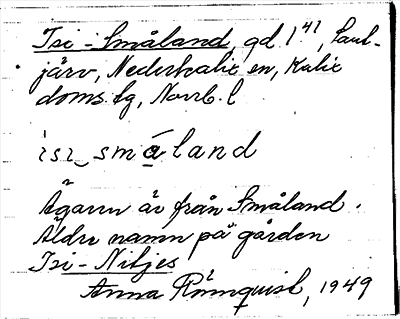 Isi-Småland, gd 1⁴¹, Saul-
järv, Nederkalix sn, Kalix
doms. tg, Norrb. l
isi småland
Ägaren är från Småland.
Äldre namn på gården
Isi-Nitjes
Anna Rönnquist, 1949